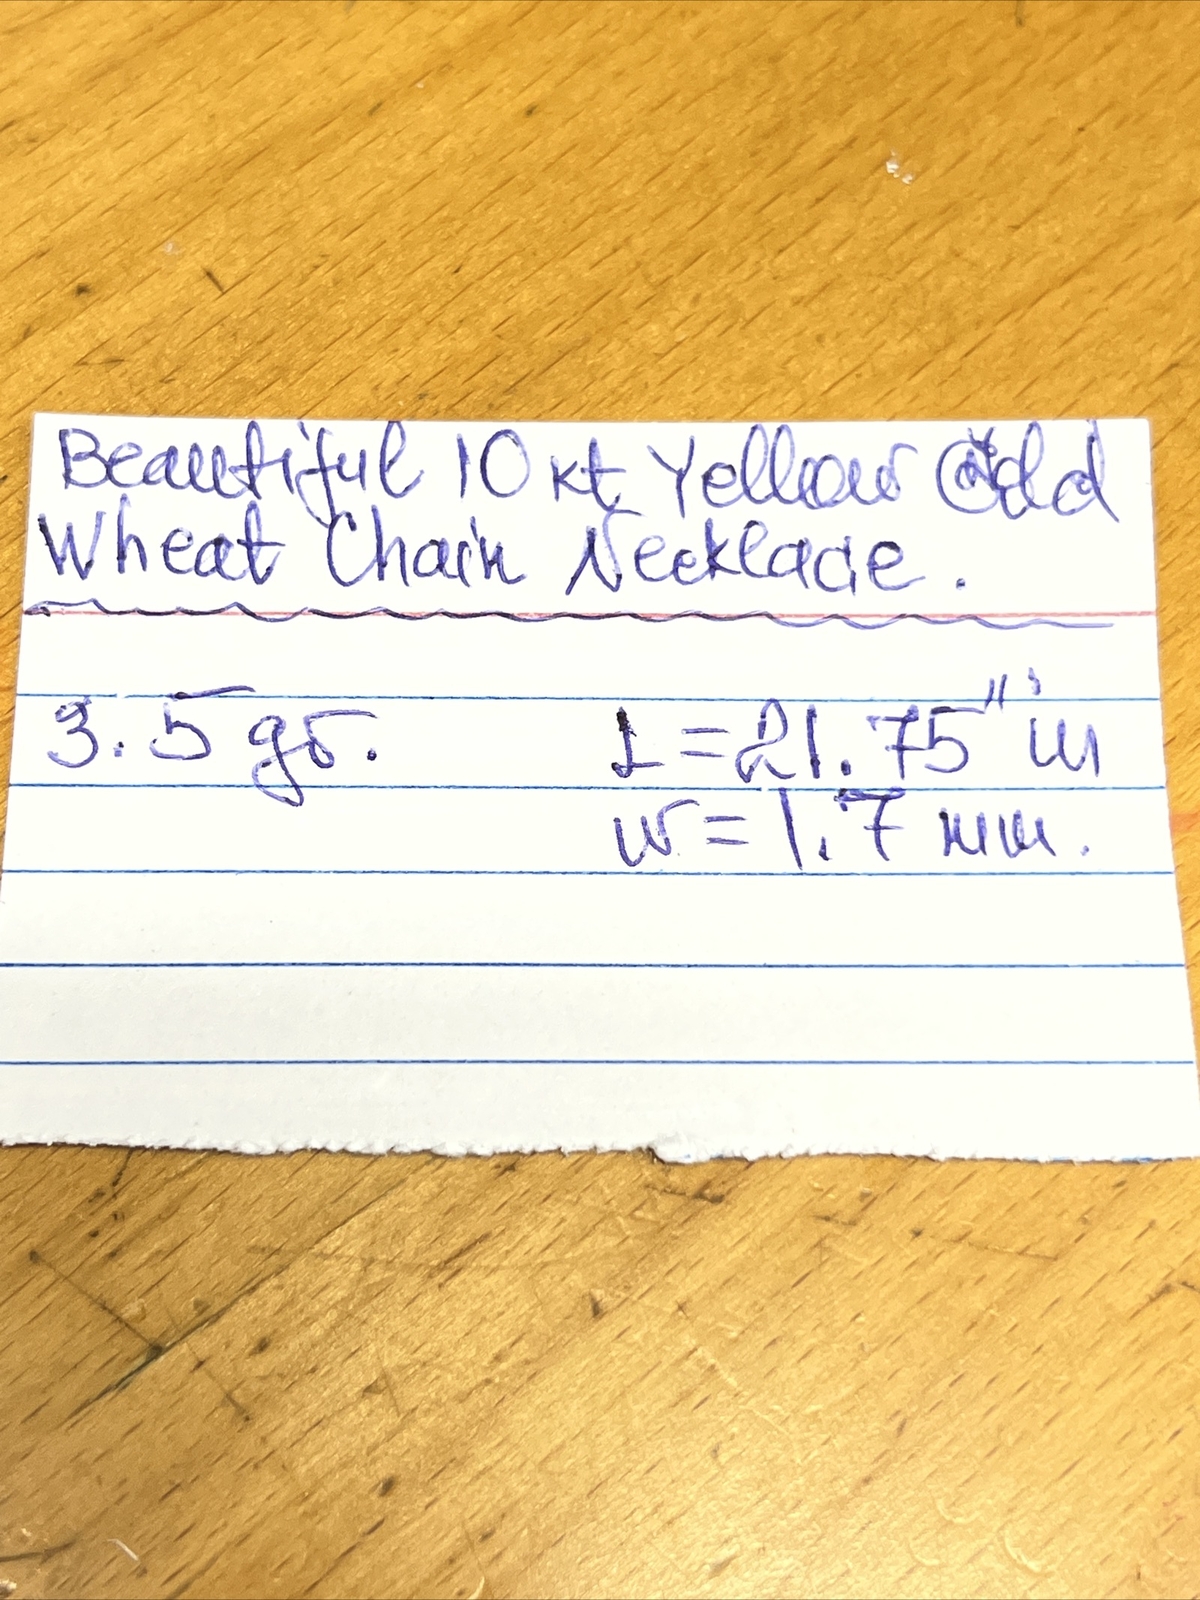 Beautiful 10 kt Yellow Gold
Wheat Chain Necklace.
3.5 gr.
L=21.75" in
w=1.7 mm.